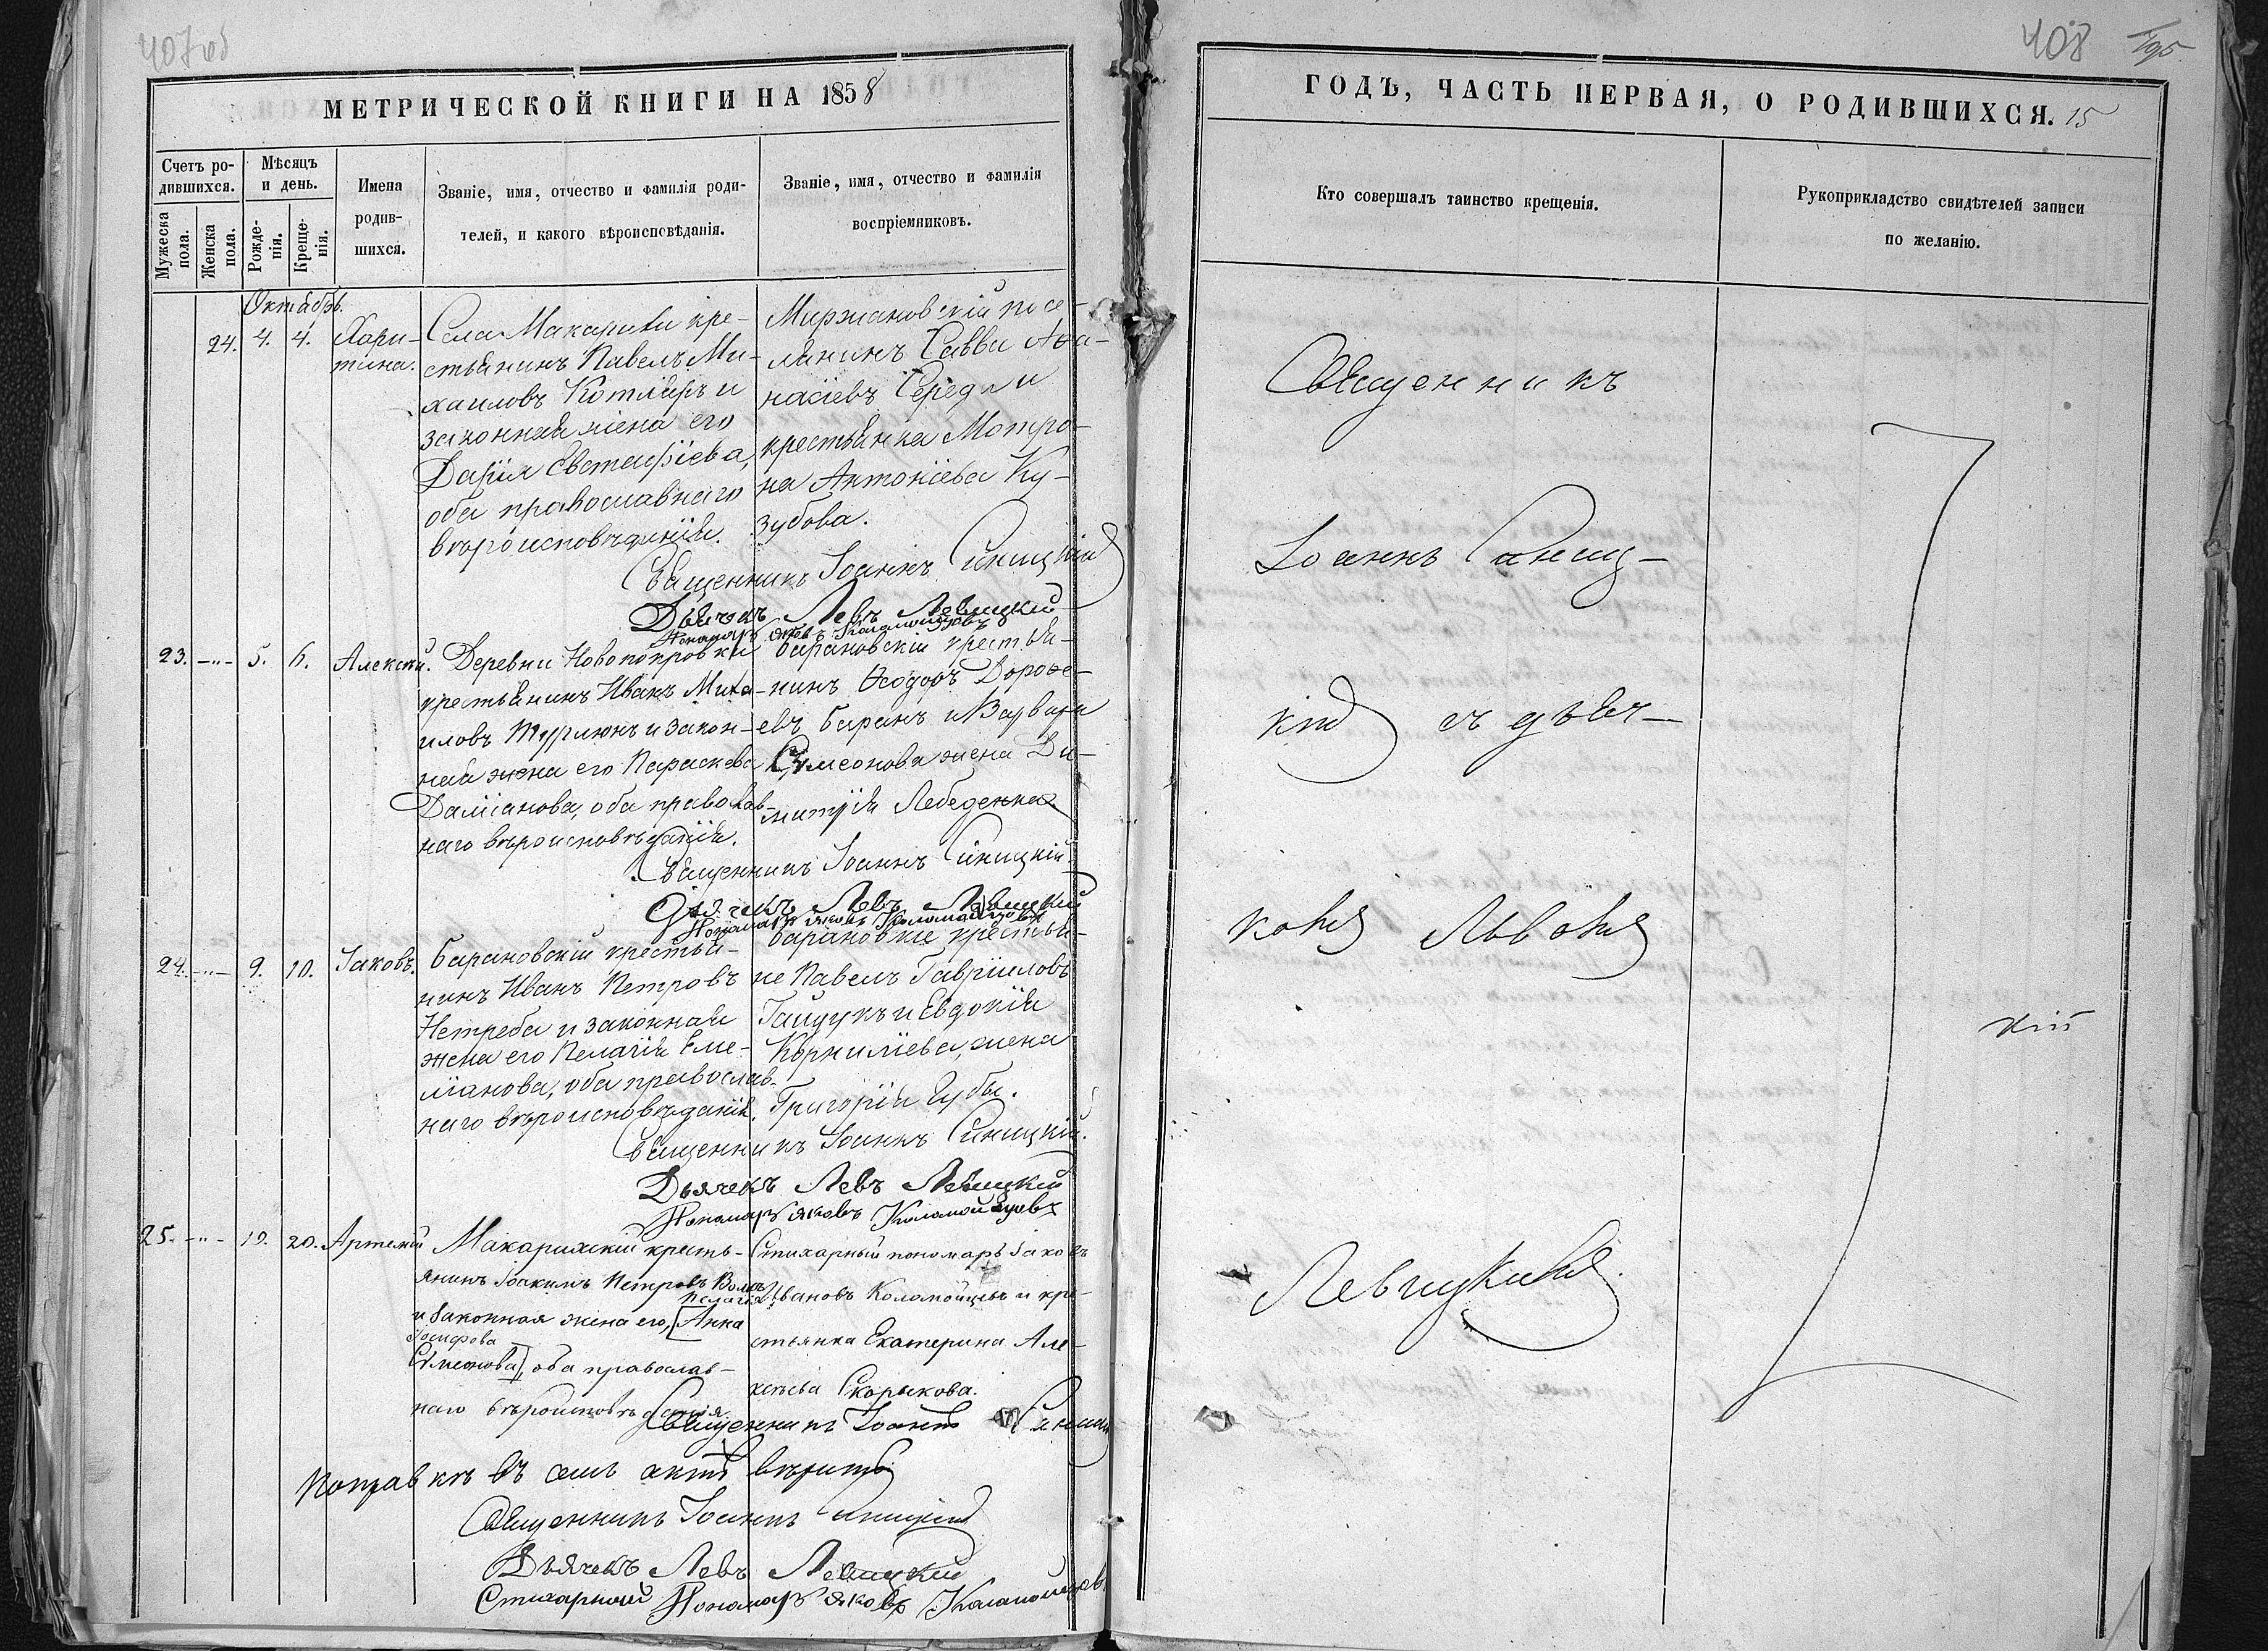 407 об
МЕТРИЧЕСКОЙ КНИГИ НА 1858
Счетъ ро-
дившихся.
Мужеска
пола.
Женска
пола.
Мѣсяцъ
и день.
Рожде-
нія.
Креще-
нія.
Имена
родив-
шихся.
Званіе, имя, отчество и фамилія роди-
телей, и какого вѣроисповѣданія.
Званіе, имя, отчество и фамилія
воспріемниковъ.
Октябрь.
24. 4. 4.
Хари-
тина.
Села Макарихи кре-
стьянинъ Павелъ Ми-
хаиловъ Котляръ и
законная жена его
Дарія Евстафіева,
оба православнаго
вѣроисповѣданія.
Миржановскій посе-
лянинъ Савва Аѳа-
насіевъ Середа и
крестьянка Мотро-
на Антоніева Ку-
зубова.
Священникъ Іоаннъ Синицкій
Дьячекъ Левъ Левицкій
Пономарь Яковъ Коломойцовъ
23. -"- 5. 6. Алексій.
Деревни Новопокровки
крестьянинъ Иванъ Миха-
иловъ Турлюнъ и закон-
ная жена его Параскева
Даміанова, оба православ-
наго вѣроисповѣданія.
Барановскій крестья-
нинъ Ѳеодоръ Дорофе-
евъ Баранъ и Варвара
Сумеонова жена Ди-
митрія Лебеденка.
Священникъ Іоаннъ Синицкій.
Дьячекъ Левъ Левицкій
Пономарь Яковъ Коломойцовъ
24. -"- 9. 10. Іаковъ.
Барановскій крестья-
нинъ Иванъ Петровъ
Нетреба и законная
жена его Пелагія Еме-
ліанова, оба православ-
наго вѣроисповѣданія.
Барановскіе крестья-
не Павелъ Гавріиловъ
Гайдукъ и Евдокія
Корниліева, жена
Григорія Губы.
Священникъ Іоаннъ Синицкій.
Дьячекъ Левъ Левицкій
Пономарь Яковъ Коломойцовъ
25. -"- 19. 20. Артемій
Макарихскій кресть-
янинъ Іоакимъ Петровъ Волкъ
Пелагія
и законная жена его, [Анна
Іосифова
Сумеонова], оба православ-
наго вѣроисповѣданія
Стихарный пономарь Іаковъ
Ивановъ Коломойцевъ и кре-
стьянка Екатерина Але-
ксѣева Скорыкова.
Священникъ Іоаннъ Синицкій
Поправкѣ въ семъ актѣ вѣрить
Священникъ Іоаннъ Синицкій
Дьячекъ Левъ Левицкій
Стихарный Пономарь Яковъ Коломойцовъ
408
195
ГОДЪ, ЧАСТЬ ПЕРВАЯ, О РОДИВШИХСЯ. 15
Кто совершалъ таинство крещенія.
Рукоприкладство свидѣтелей записи
по желанію.
Священникъ
Іоаннъ Синиц-
кій съ дьяч-
комъ Львомъ
Левицкимъ.
кій